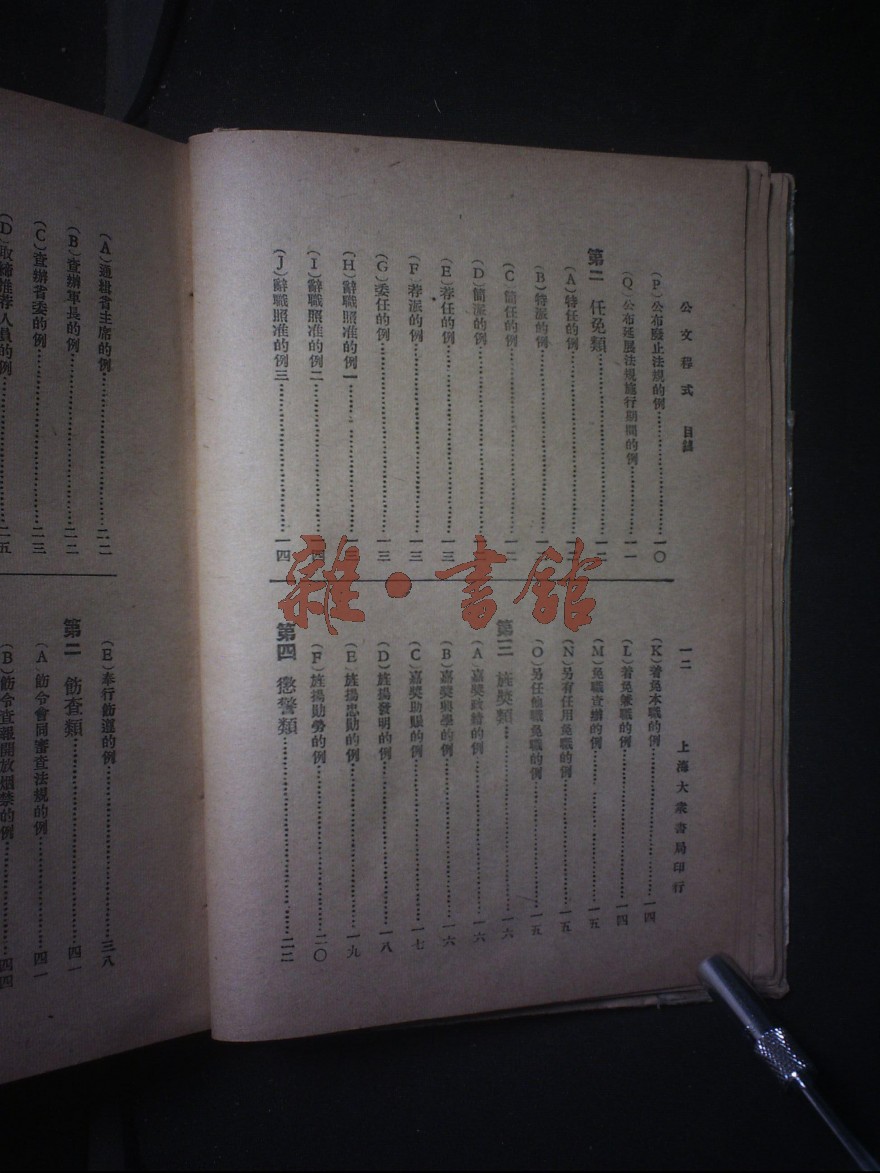 公文程式 目錄
一二
上海大衆書局印行
(P)公布廢止法規的例……一〇
(Q)公布延展法規施行期間的例……一一
第二 任免類……一二
(A)特任的例……一二
(B)特派的例……一二
(C)簡任的例……一二
(D)簡派的例……一三
(E)荐任的例……一三
(F)荐派的例……一三
(G)委任的例……一三
(H)辭職照准的例一……一三
(I)辭職照准的例二……一四
(J)辭職照准的例三……一四
(K)着免本職的例……一四
(L)着免兼職的例……一四
(M)免職查辦的例……一五
(N)另有任用免職的例……一五
(O)另任他職免職的例……一五
第三 旌獎類……一六
(A)嘉獎政績的例……一六
(B)嘉獎興學的例……一六
(C)嘉獎助賑的例……一七
(D)旌揚發明的例……一八
(E)旌揚忠勛的例……一九
(F)旌揚勛勞的例……二〇
第四 懲警類……二二
(A)通緝省主席的例……二二
(B)查辦軍長的例……二二
(C)查辦省委的例……二三
(D)取締推荐人員的例……二五
(E)奉行飭遵的例……三八
第二 飭查類……四一
(A 飭令會同審查法規的例……四一
(B)飭令查報開放烟禁的例……四四
雜·書館